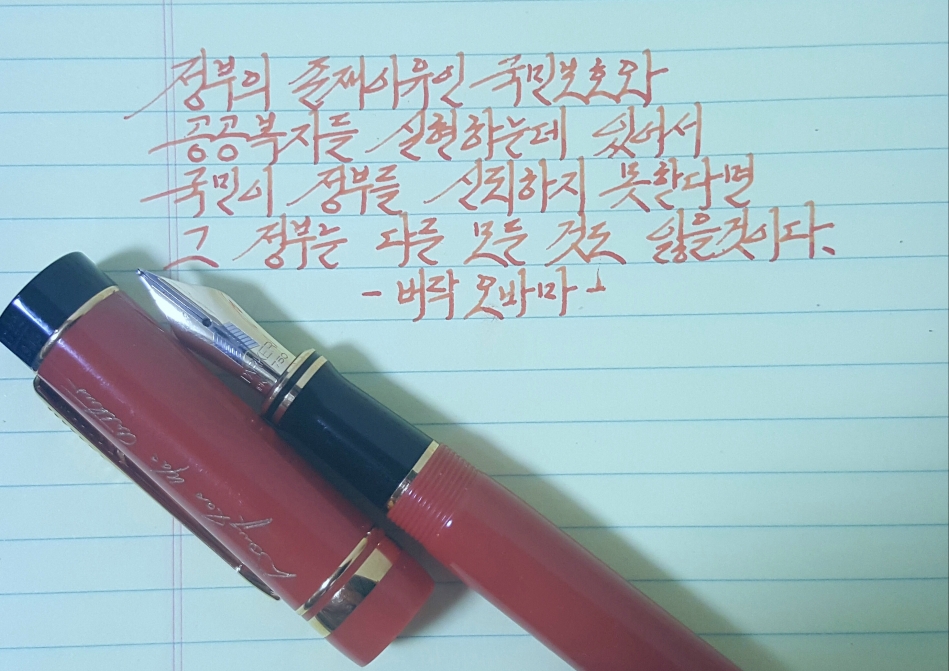 정부의 존재이유인 국민보호와
공공복지를 실현하는데 있어서
국민이 정부를 신뢰하지 못한다면
그 정부는 다른 모든 것도 잃을것이다.
- 버락 오바마 -